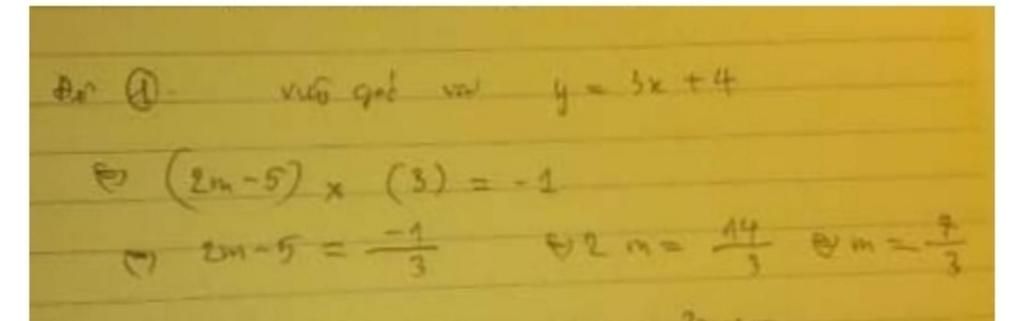 Để ① vuông góc với y = 3x + 4
⇔ (2m - 5) × (3) = -1
⇔ 2m - 5 = -1/3 ⇔ 2m = 14/3 ⇔ m = 7/3